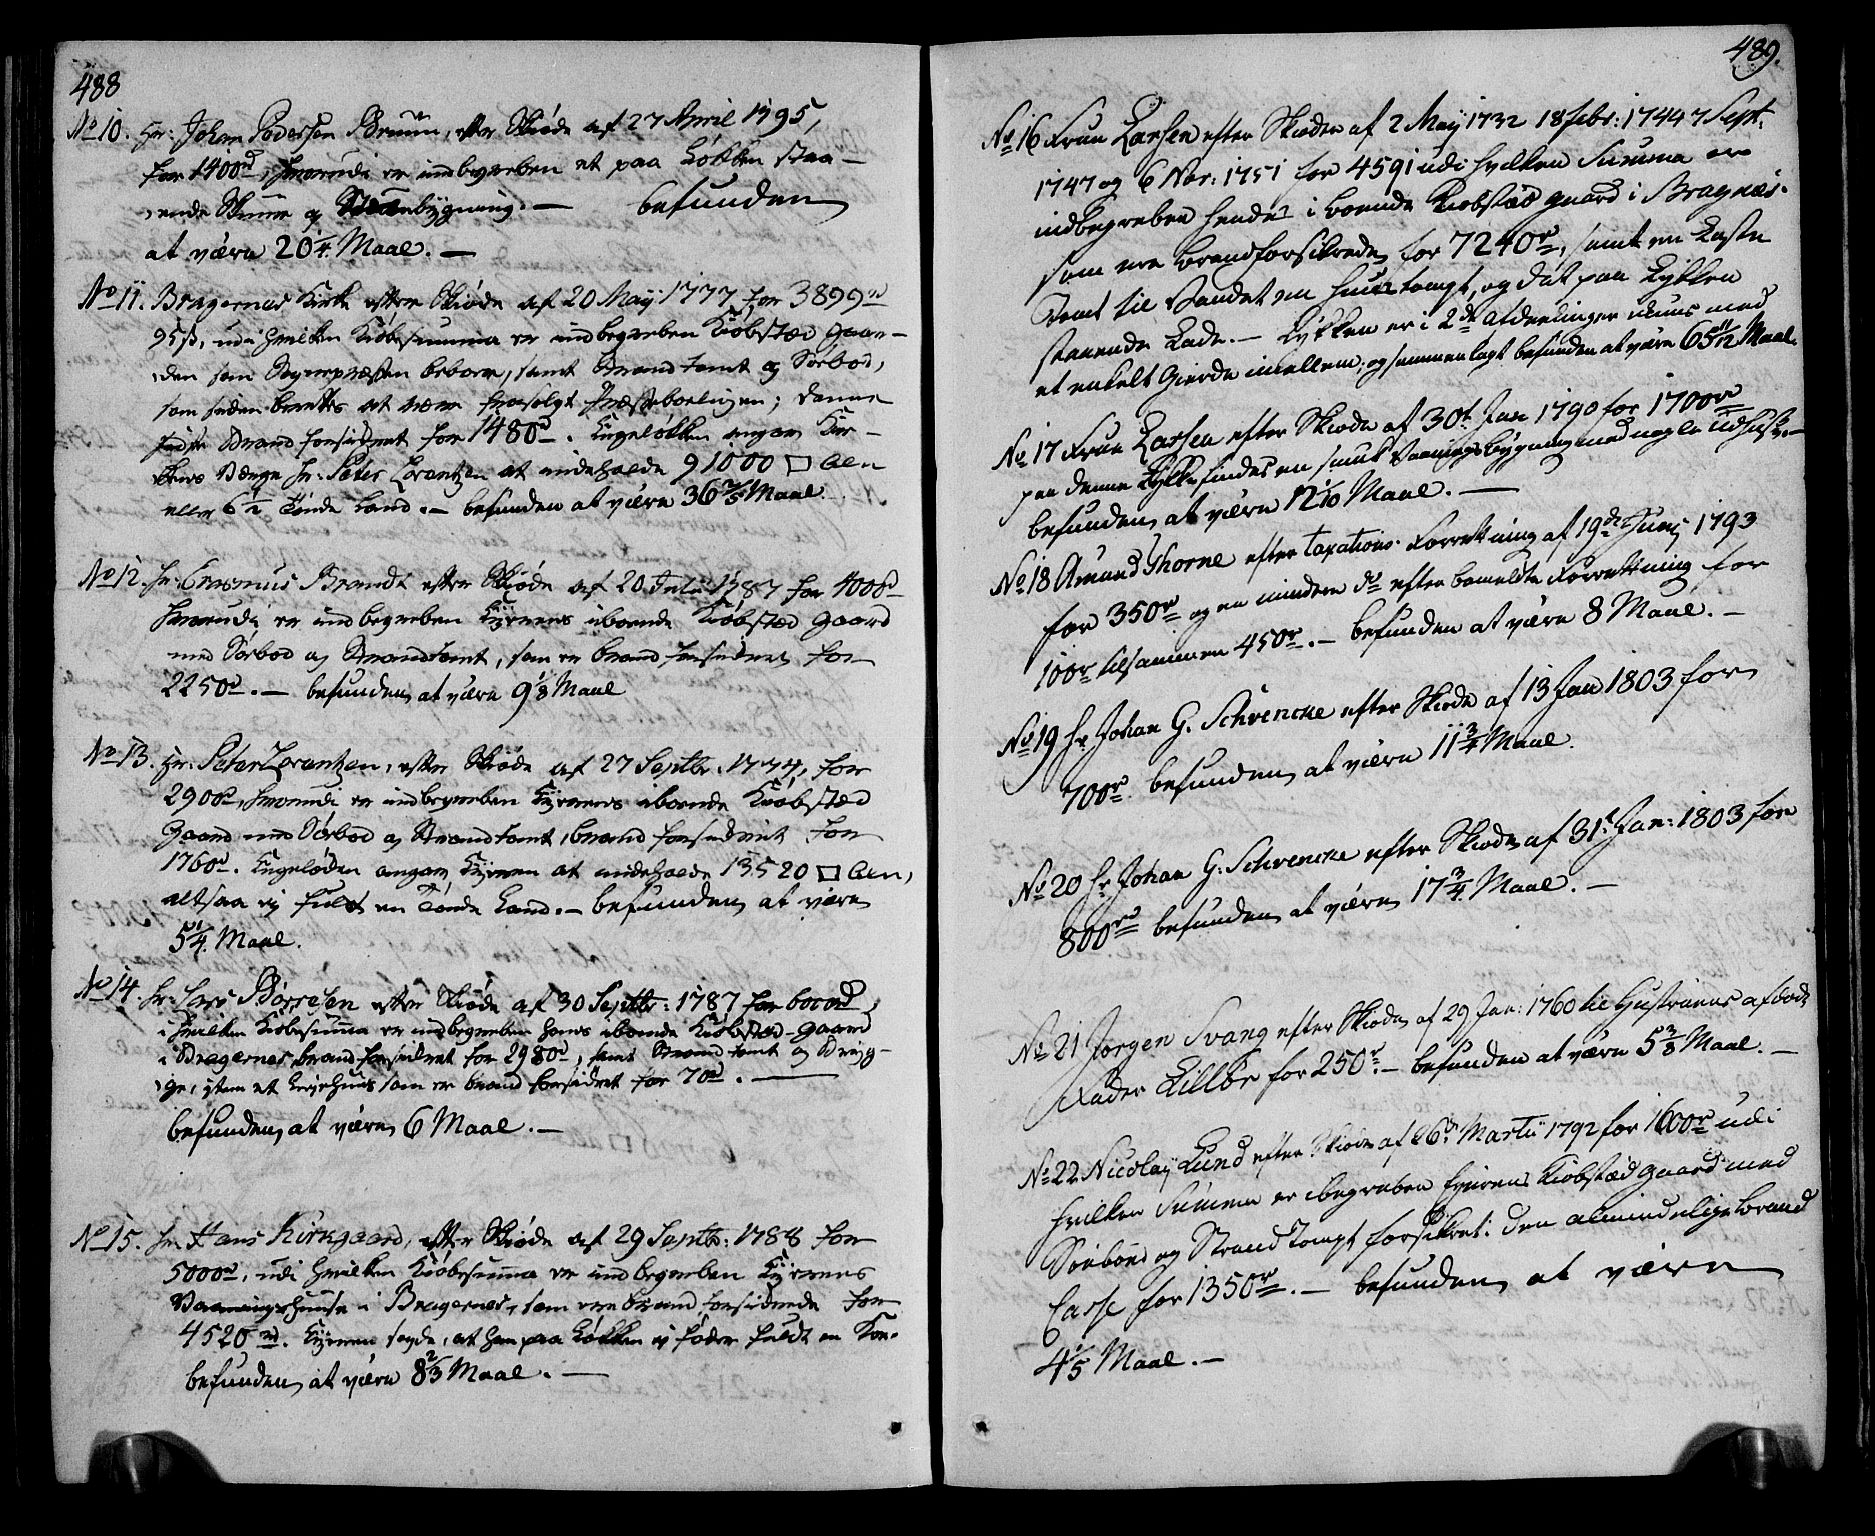 488
No 10. Hr: Johan Pedersen Bruun, efter Skiøde af 27 April 1795,
for 1400rd, hvorudi er indbegreben et paa Løkken staa-
ende Skuur og bygning. — befunden
at være 20 1/4. Maal. —
No 11. Bragernes Kirke efter Skiøde af 20 Maij 1777 for 3899rd
95s, udi hvilken Kiøbesumma er indbegreben Kiøbstæd gaar-
den som Sognepræsten beboer, samt Strand tomt og Søebod,
som siden berettes at være frasolgt Præsteboeligen; denne
Brand forsikret for 1480rd. Engeløkken angav Kir-
kens Værge Hr: Peter Lorentzen at indeholde 91000 □ Alen
eller 6 1/2 Tønde Land. — befunden at være 36 2/5 Maal
No 12. Hr: Erasmus Brandt efter Skiøde af 20 Julii 1787 for 4000rd
hvorudi er indbegreben Eÿerens iboende Kiøbstæd gaard
med Søebod og Strandtomt, som er brand forsikret for
2250rd. — befunden at være 9 1/8 Maal
No 13. Hr: Peter Lorentzen, efter Skiøde af 27 Septbr. 1774, for
2900rd, hvorudi er indbegreben Eÿerens iboende Kiøbstæd
Gaard med Søebod og Strandtomt, brand forsikret for
1760rd. Engeløkken angav Eÿeren at indeholde 13520 □ Alen,
altsaa ej fuldt en Tønde Land. — befunden at være
5 1/4. Maal.
No 14. Hr: Lars Børresen efter Skiøde af 30 Septbr: 1787 for 6000rd
i hvilken Kiøbesumma er indbegreben hans iboende Kiøbsted-gaard
i Bragernes brand forsikret for 2980rd, samt Strand tomt og Brÿg-
ge, item et Leÿehuus som er brand forsikret for 70rd. —
befunden at være 6 Maal. —
No 15. Hr. Hans Kirkgaard, efter Skiøde af 29 Septbr: 1788 for
5000rd, udi hvilken Kiøbesumma er indbegreben Eÿerens
Vaaningshuuse i Bragernes, som ere brand forsikrede for
4520rd. Eÿeren sagde, at han paa Løkken ej føder fuldt en Koe.
befunden at være 8 2/3 Maal. —
489.
No 16 Frue Larsen efter Skiøder af 2 Maij 1732 18 febr: 1744 7 Sept.
1747 og 6 Nov: 1751 for 4591 udi hvilken Summa er
indbegreben hendes i boende Kiøbstæd gaard i Bragnæs.
som ere brandforsikrede for 7240r, samt en Løste
Tomt til Vandet en huus tompt, og dit paa Løkken
staaende Lade. — Løkken er i 2de afdeelinger uuns med
et enkelt Gierde imellem, og sammenlagt befunden at være 65 11/12 Maal.
No 17 Frue Larsen efter Skiøde af 30t Jan 1790 for 1700rd
paa denne Løkke findes en smuk Vaaningsbygning med nogle Udhuse. —
befunden at være 12 1/10 Maal. —
No 18 Amund Thorne efter taxations Forretning af 19de Junij 1793
for 350r og en mindre do efter bemeldte Forretning for
100r tilsammen 450r. — befunden at være 8 Maal. —
No 19 Hr Johan G. Schvencke efter Skiøde af 13 Jan 1803 for
700r befunden at være 11 3/4 Maal.
No 20 Hr Johan G. Schvencke efter Skiøde af 31t Jan: 1803 for
800rd befunden at være 17 3/4 Maal. —
No 21 Jørgen Svang efter Skiøde af 29 Jan: 1760 til Hustruens afdøde
Fader Lillbe for 250r. — befunden at være 5 3/8 Maal. —
No 22 Nicolaÿ Lund efter Skiøde af 26de Martii 1792 for 1600r udi
hvilken Summa er ibegreben Eÿerens Kiøbstæd gaard med
Søeboed og Strand Tompt forsikret i den almindelige brand
Casse for 1350r. — befunden at være
4 1/5 Maal. —